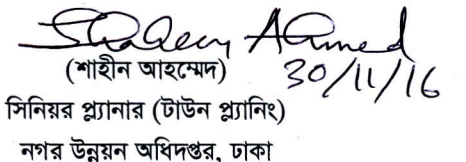 Shaheen Ahmed
(শাহীন আহম্মেদ) 30/11/16
সিনিয়র প্ল্যানার (টাউন প্ল্যানিং)
নগর উন্নয়ন অধিদপ্তর, ঢাকা